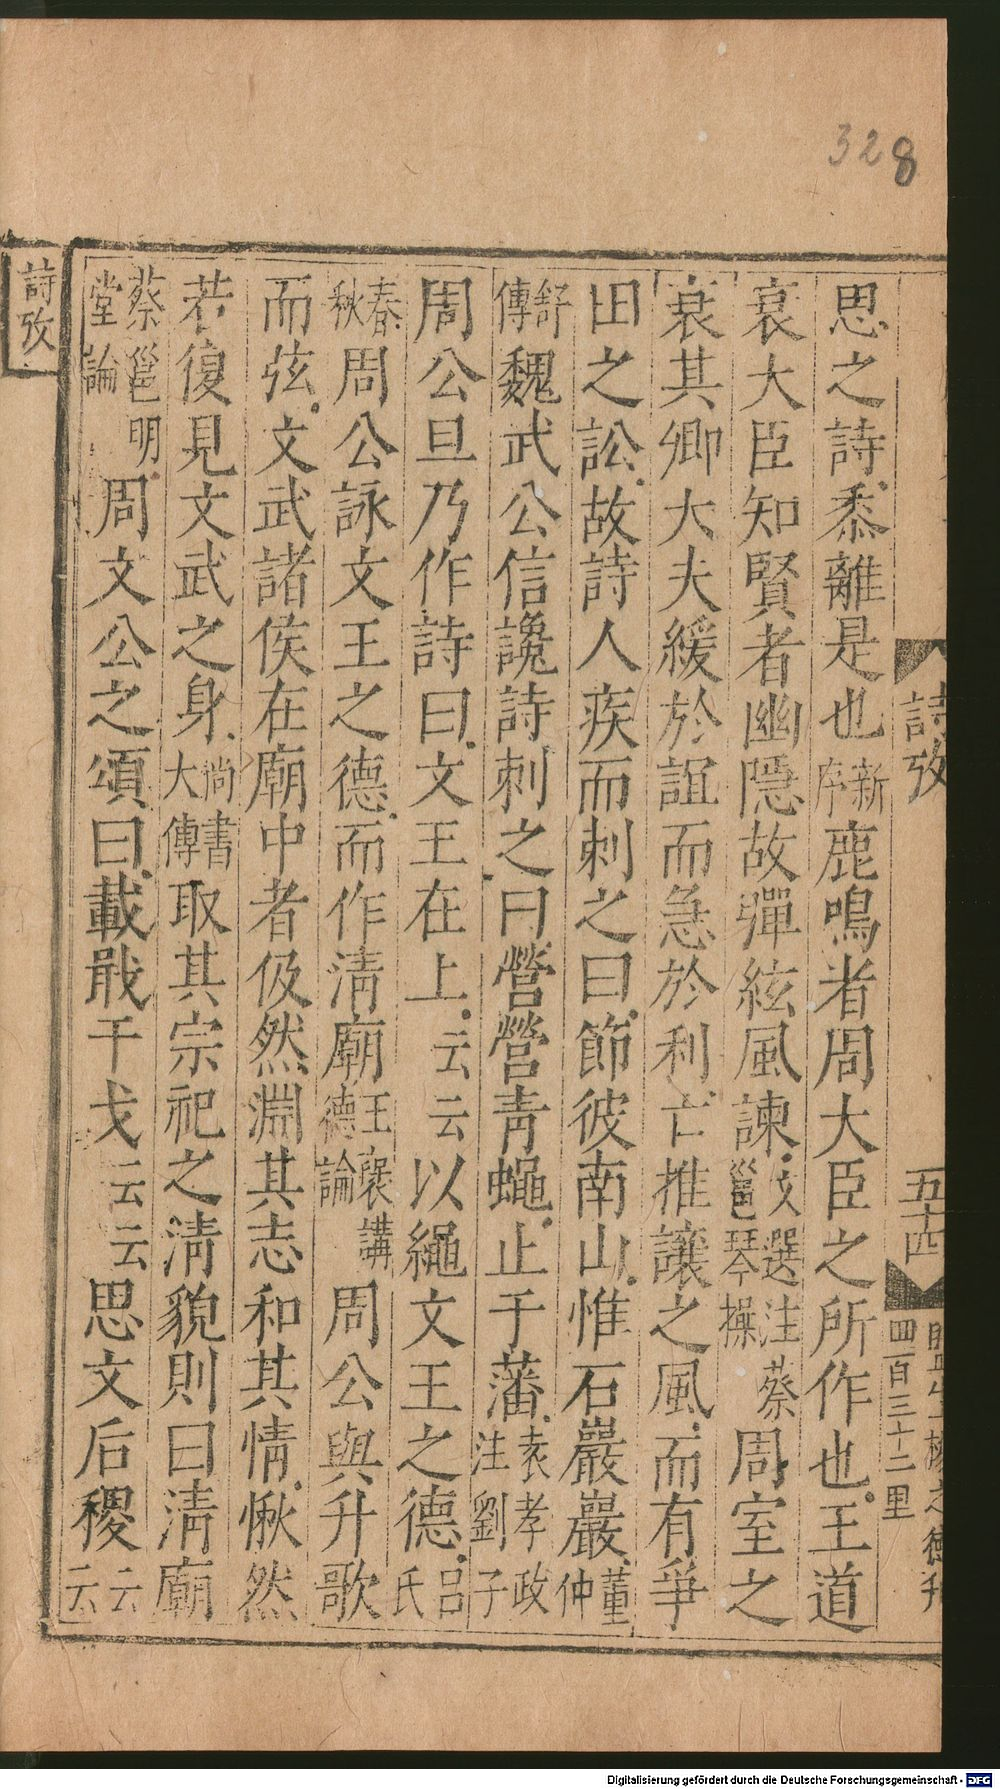 328
詩攷
五十四
四百三十二里
思之詩黍離是也新序鹿鳴者周大臣之所作也王道
衰大臣知賢者幽隱故彈絃風諫文選注蔡邕琴操周室之
衰其卿大夫緩於誼而急於利亡推讓之風而有爭
田之訟故詩人疾而刺之曰節彼南山惟石巖巖董仲
舒傳魏武公信讒詩刺之曰營營青蠅止于藩袁孝政注劉子
周公旦乃作詩曰文王在上云云以繩文王之德呂氏
春秋周公詠文王之德而作淸廟王襃講德論周公與升歌
而弦文武諸侯在廟中者伋然淵其志和其情愀然
若復見文武之身尚書大傳取其宗祀之淸貌則曰淸廟
蔡邕明堂論周文公之頌曰載戢干戈云云思文后稷云云
詩攷
Digitalisierung gefördert durch die Deutsche Forschungsgemeinschaft - DFG